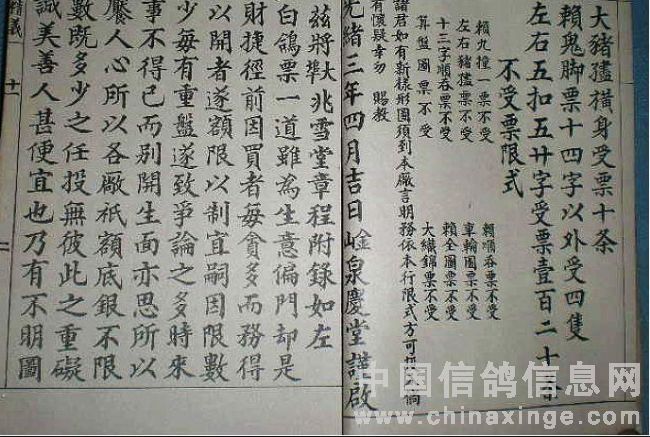 大豬獹橫身受票十条
賴鬼脚票十四字以外受四隻
左右五扣五廿字受票壹百二十
不受票限式
賴九撞一票不受 賴順吞票不受
左右豬獹票不受 車輪圖票不受
十三字順吞票不受 賴全圖票不受
算盤圖票不受 大繡錦票不受
諸君如有新樣形圖須到本廠言明務依本行限式方可 倘
有懷疑幸勿 賜教
光緒三年四月吉日 泉慶堂謹啟
茲將 大兆雪堂章程附錄如左
白鴿票一道雖為生意偏門却是
財捷徑前因買者每貪多而務得
以開者遂額限以制宜嗣因限數
少每有重盤遂致爭論之多時來
事不得已而別開生面亦思所以
饜人心所以各廠衹額底銀不限
數既多少之任投無彼此之重礙
誠美善人甚便宜也乃有不明圖
精義 十
二
中国信鸽信息网
www.chinaxinge.com